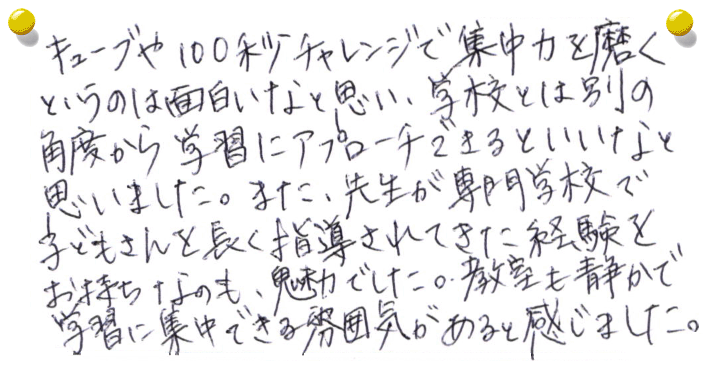 キューブや100秒チャレンジで集中力を磨く
というのは面白いなと思い、学校とは別の
角度から学習にアプローチできるといいなと
思いました。また、先生が専門学校で
子どもさんを長く指導されてきた経験を
お持ちなのも、魅力でした。教室も静かで
学習に集中できる雰囲気があると感じました。